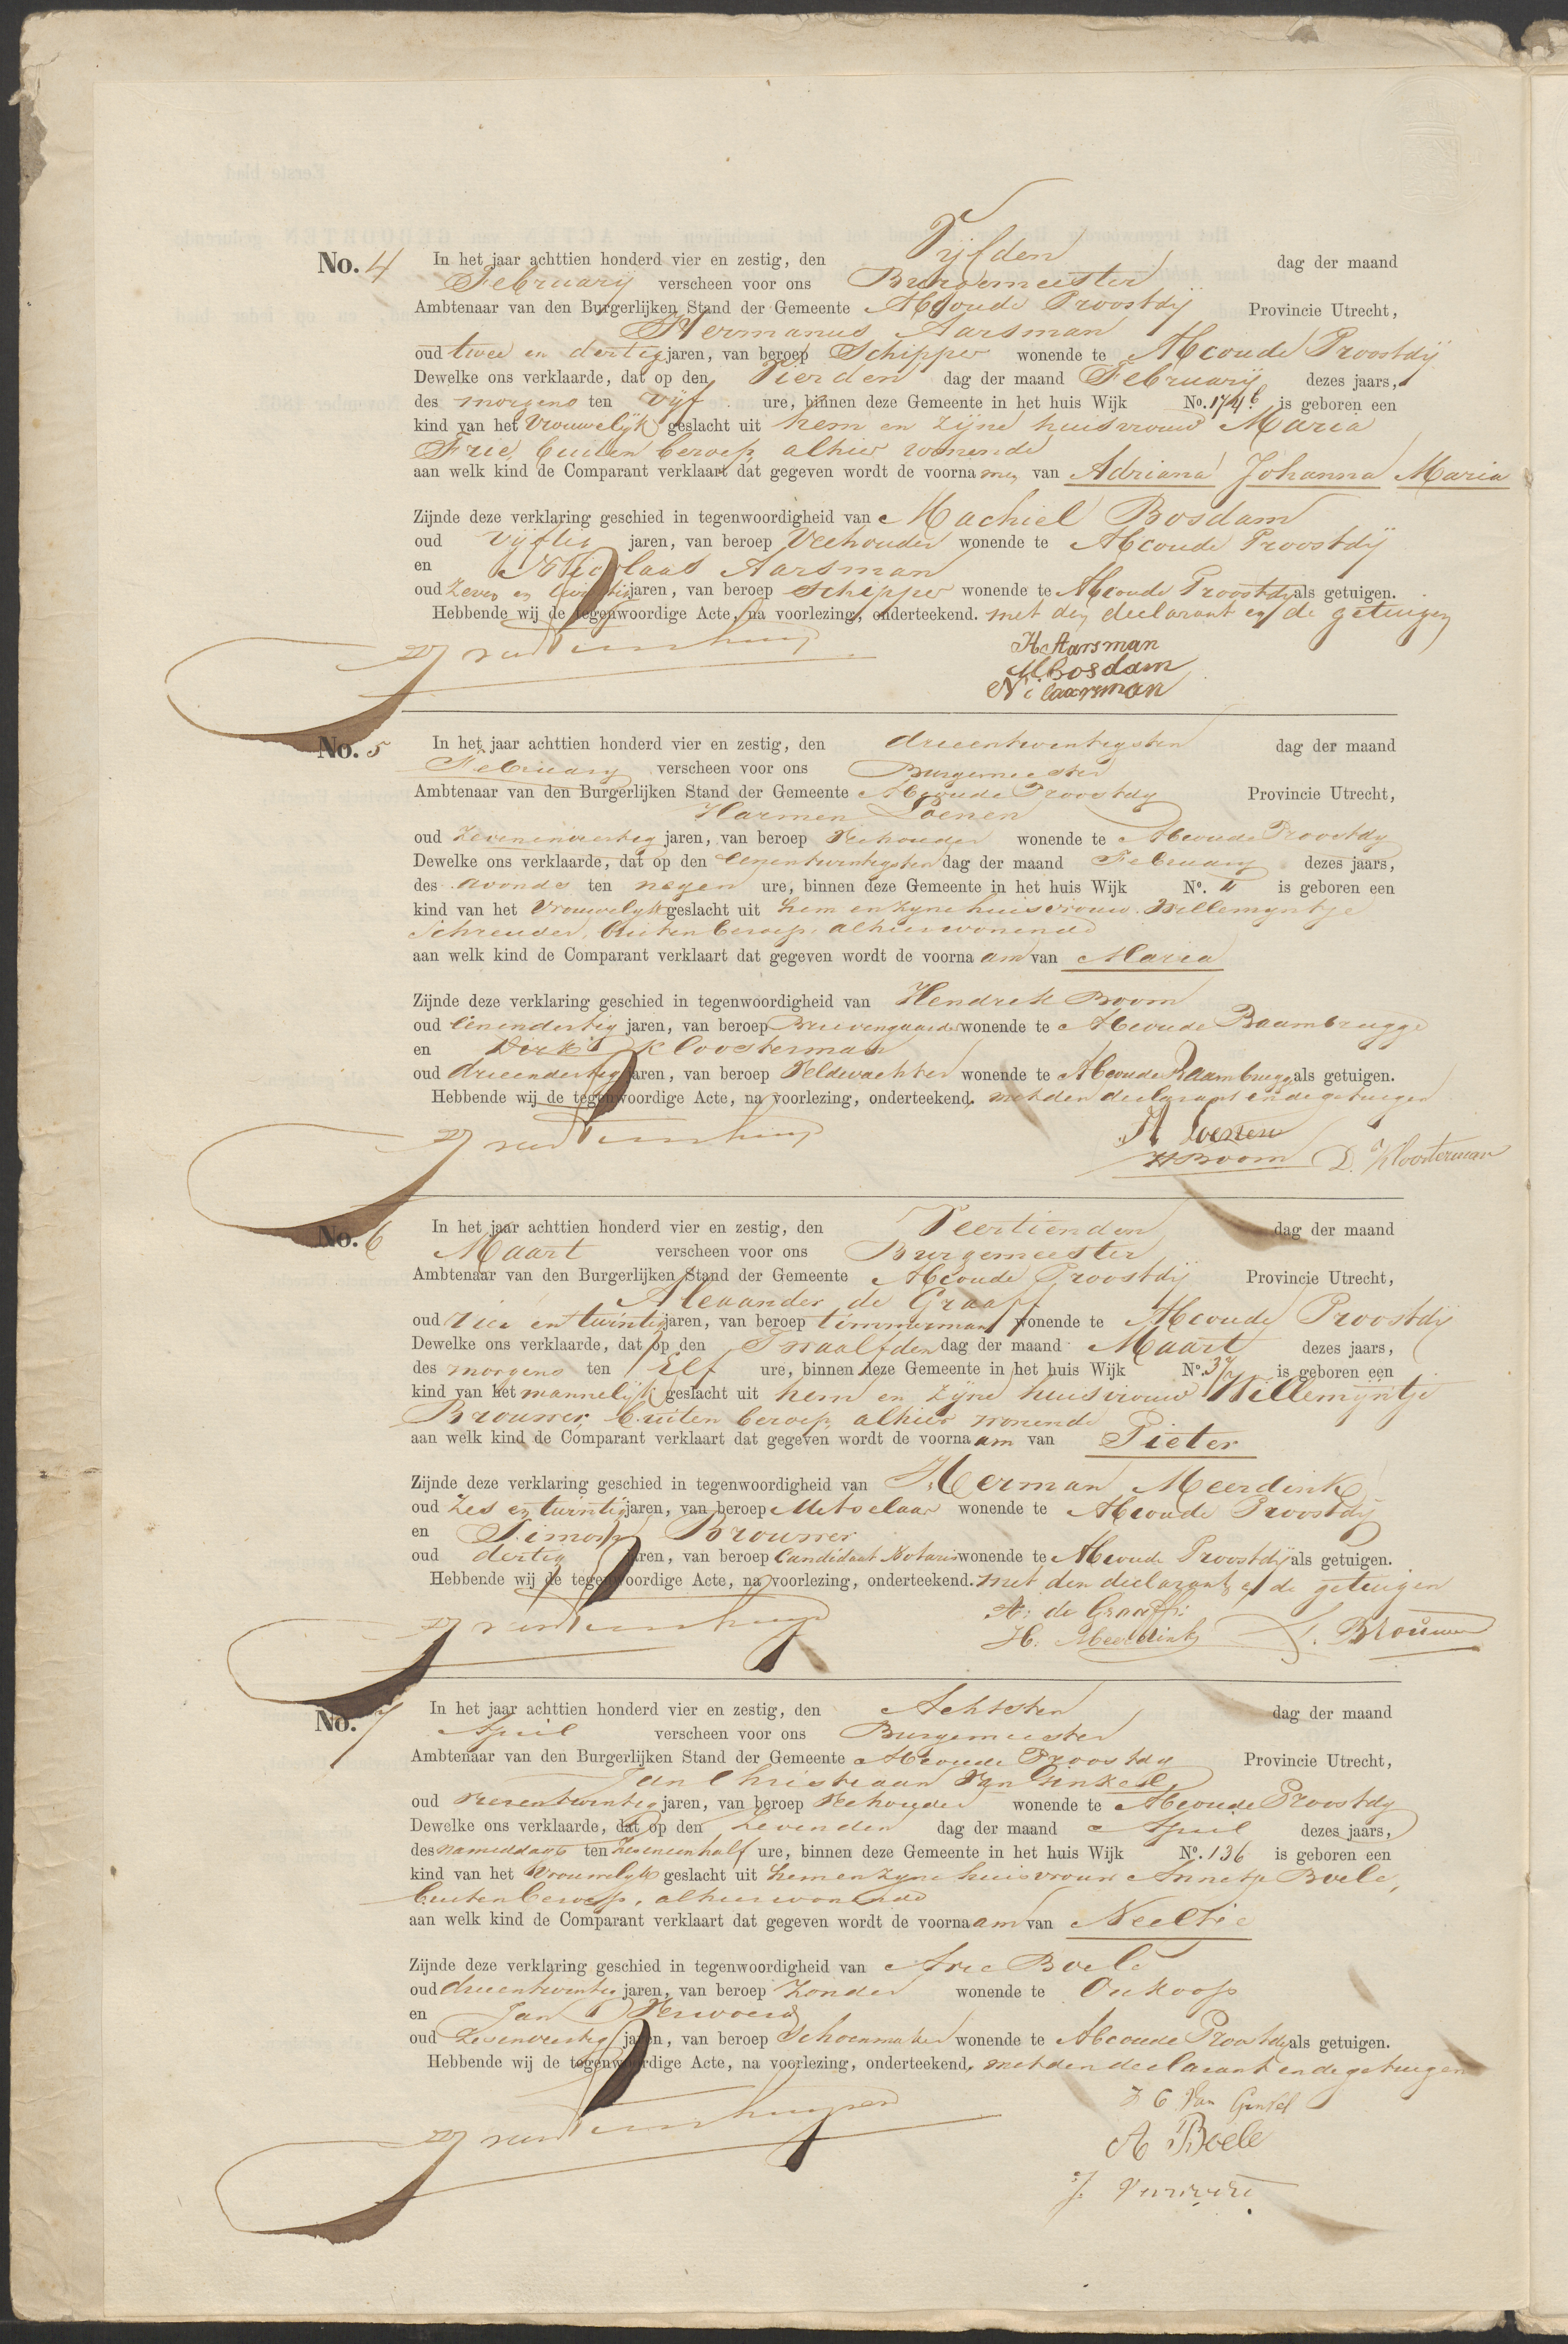 No. 4 In het jaar achttien honderd vier en zestig, den Vijfden dag der maand
Februarij verscheen voor ons Burgemeester
Ambtenaar van den Burgerlijken Stand der Gemeente Abcoude Proostdij Provincie Utrecht,
Hermanus Aarsman
oud twee en dertig jaren, van beroep Schipper wonende te Abcoude Proostdij
Dewelke ons verklaarde, dat op den Vierden dag der maand Februarij dezes jaars,
des morgens ten vijf ure, binnen deze Gemeente in het huis Wijk No. 174 b is geboren een
kind van het Vrouwelijk geslacht uit hem en zijne huisvrouw Maria
Frie, buiten beroep, alhier wonende
aan welk kind de Comparant verklaart dat gegeven wordt de voornamen van Adriana Johanna Maria
Zijnde deze verklaring geschied in tegenwoordigheid van Machiel Bosdam
oud vijftig jaren, van beroep Veehouder wonende te Abcoude Proostdij
en Nicolaas Aarsman
oud Zeven en twintig jaren, van beroep Schipper wonende te Abcoude Proostdij als getuigen.
Hebbende wij de tegenwoordige Acte, na voorlezing, onderteekend. met den declarant en de getuigen
H Aarsman
M Bosdam
Ni laarsman
No. 5 In het jaar achttien honderd vier en zestig, den drieentwintigsten dag der maand
February verscheen voor ons Burgemeester
Ambtenaar van den Burgerlijken Stand der Gemeente Abcoude Proostdy Provincie Utrecht,
Harmen Loenen
oud Zevenenveertig jaren, van beroep Veehouder wonende te Abcoude Proostdy
Dewelke ons verklaarde, dat op den eenentwintigsten dag der maand February dezes jaars,
des avonds ten negen ure, binnen deze Gemeente in het huis Wijk No. is geboren een
kind van het Vrouwelyk geslacht uit hem en zyne huisvrouw Willemyntje
Schreuder, buiten beroep, alhier wonende
aan welk kind de Comparant verklaart dat gegeven wordt de voornaam van Maria
Zijnde deze verklaring geschied in tegenwoordigheid van Hendrik Boom
oud eenendertig jaren, van beroep Brievengaarder wonende te Abcoude Baambrugge
en Dirk Kloosterman
oud drieendertig jaren, van beroep Veldwachter wonende te Abcoude Baambrugge als getuigen.
Hebbende wij de tegenwoordige Acte, na voorlezing, onderteekend. met den declarant en de getuigen
H Loenen
H Boom D. Kloosterman
No. 6 In het jaar achttien honderd vier en zestig, den Veertienden dag der maand
Maart verscheen voor ons Burgemeester
Ambtenaar van den Burgerlijken Stand der Gemeente Abcoude Proostdij Provincie Utrecht,
Alexander de Graaff
oud vier en twintig jaren, van beroep timmerman wonende te Abcoude Proostdij
Dewelke ons verklaarde, dat op den Twaalfden dag der maand Maart dezes jaars,
des morgens ten Elf ure, binnen deze Gemeente in het huis Wijk No. 37 is geboren een
kind van het mannelijk geslacht uit hem en zijne huisvrouw Willemijntje
Brouwer, buiten beroep, alhier wonende
aan welk kind de Comparant verklaart dat gegeven wordt de voornaam van Pieter
Zijnde deze verklaring geschied in tegenwoordigheid van Herman Meerdink
oud Zes en twintig jaren, van beroep Metselaar wonende te Abcoude Proostdij
en Simon Brouwer
oud dertig jaren, van beroep Candidaat Notaris wonende te Abcoude Proostdij als getuigen.
Hebbende wij de tegenwoordige Acte, na voorlezing, onderteekend. met den declarant en de getuigen
A: de Graaff:
H. Meerdink S. Brouwer
No. 7 In het jaar achttien honderd vier en zestig, den Achtsten dag der maand
April verscheen voor ons Burgemeester
Ambtenaar van den Burgerlijken Stand der Gemeente Abcoude Proostdy Provincie Utrecht,
Jan Christiaan Van Ginkel
oud vierentwintig jaren, van beroep Veehouder wonende te Abcoude Proostdy
Dewelke ons verklaarde, dat op den Zevenden dag der maand April dezes jaars,
des namiddags ten Zeseneenhalf ure, binnen deze Gemeente in het huis Wijk No. 136 is geboren een
kind van het Vrouwelyk geslacht uit hem en zyne huisvrouw Annetje Boele,
buiten beroep, alhier wonende
aan welk kind de Comparant verklaart dat gegeven wordt de voornaam van Neeltje
Zijnde deze verklaring geschied in tegenwoordigheid van Arie Boele
oud drieentwintig jaren, van beroep Zonder wonende te Oukoop
en Jan Verwoerd
oud Zesenveertig jaren, van beroep Schoenmaker wonende te Abcoude Proostdy als getuigen.
Hebbende wij de tegenwoordige Acte, na voorlezing, onderteekend. met den declarant en de getuigen
J C Van Ginkel
A Boele
J.